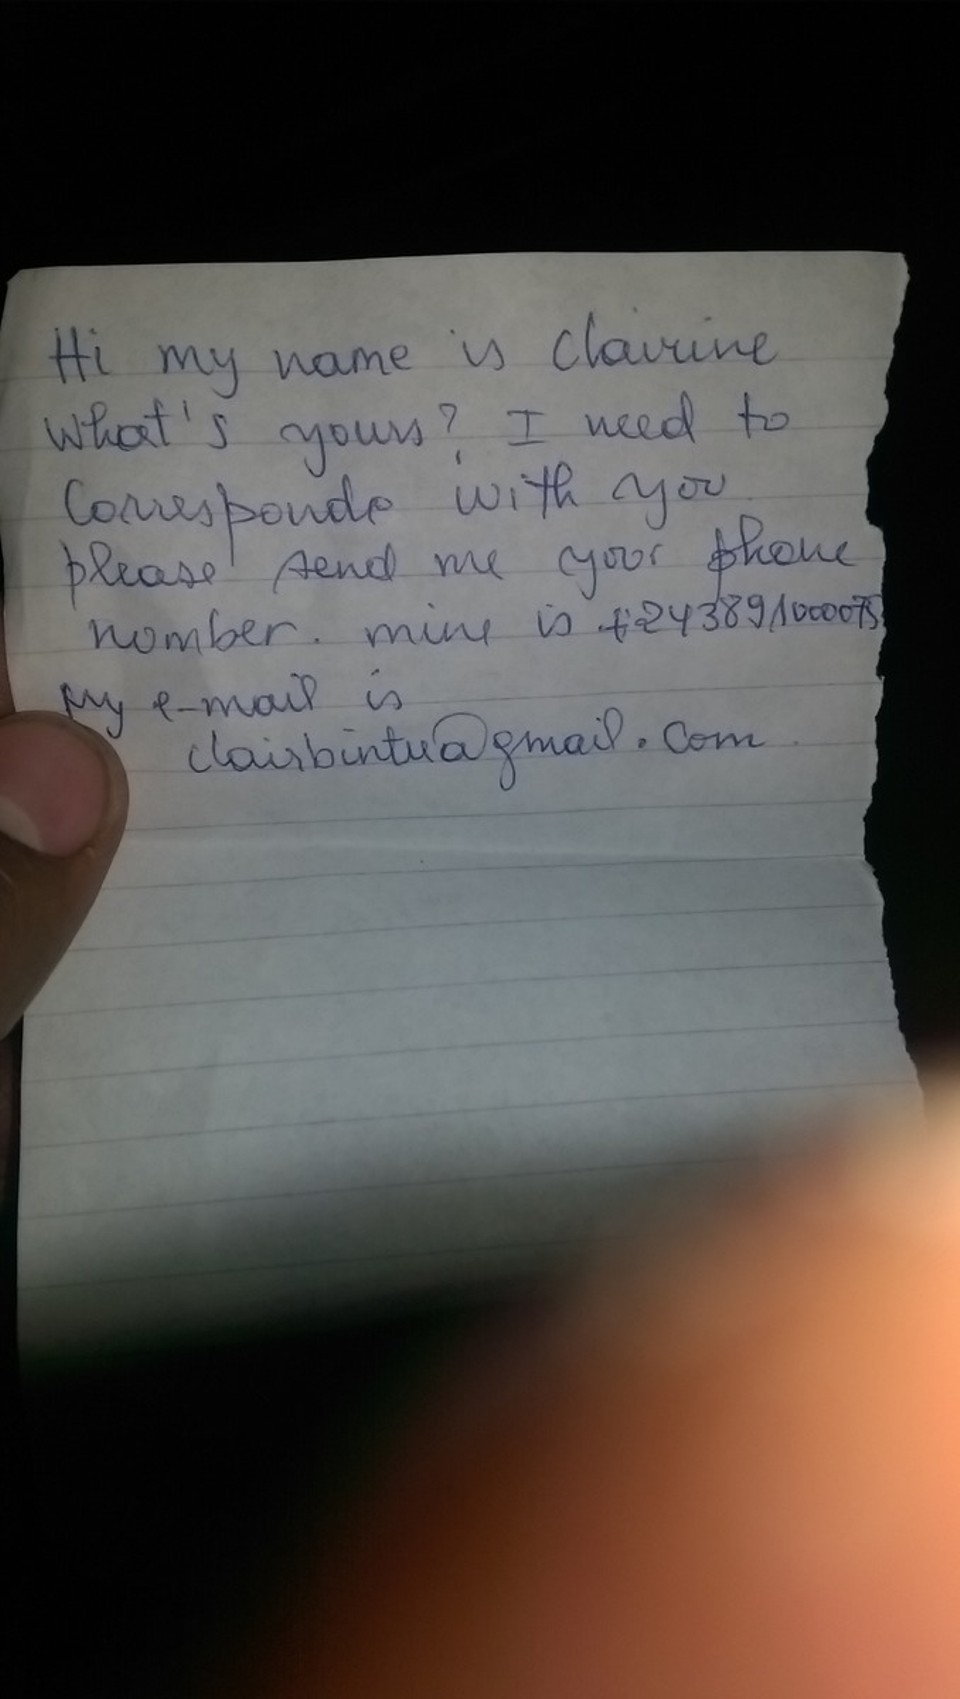 Hi my name is Clairine
What's yours? I need to
Corresponde with you
please send me your phone
nomber. mine is +243891000075
My e-mail is
clairbintu@gmail.com